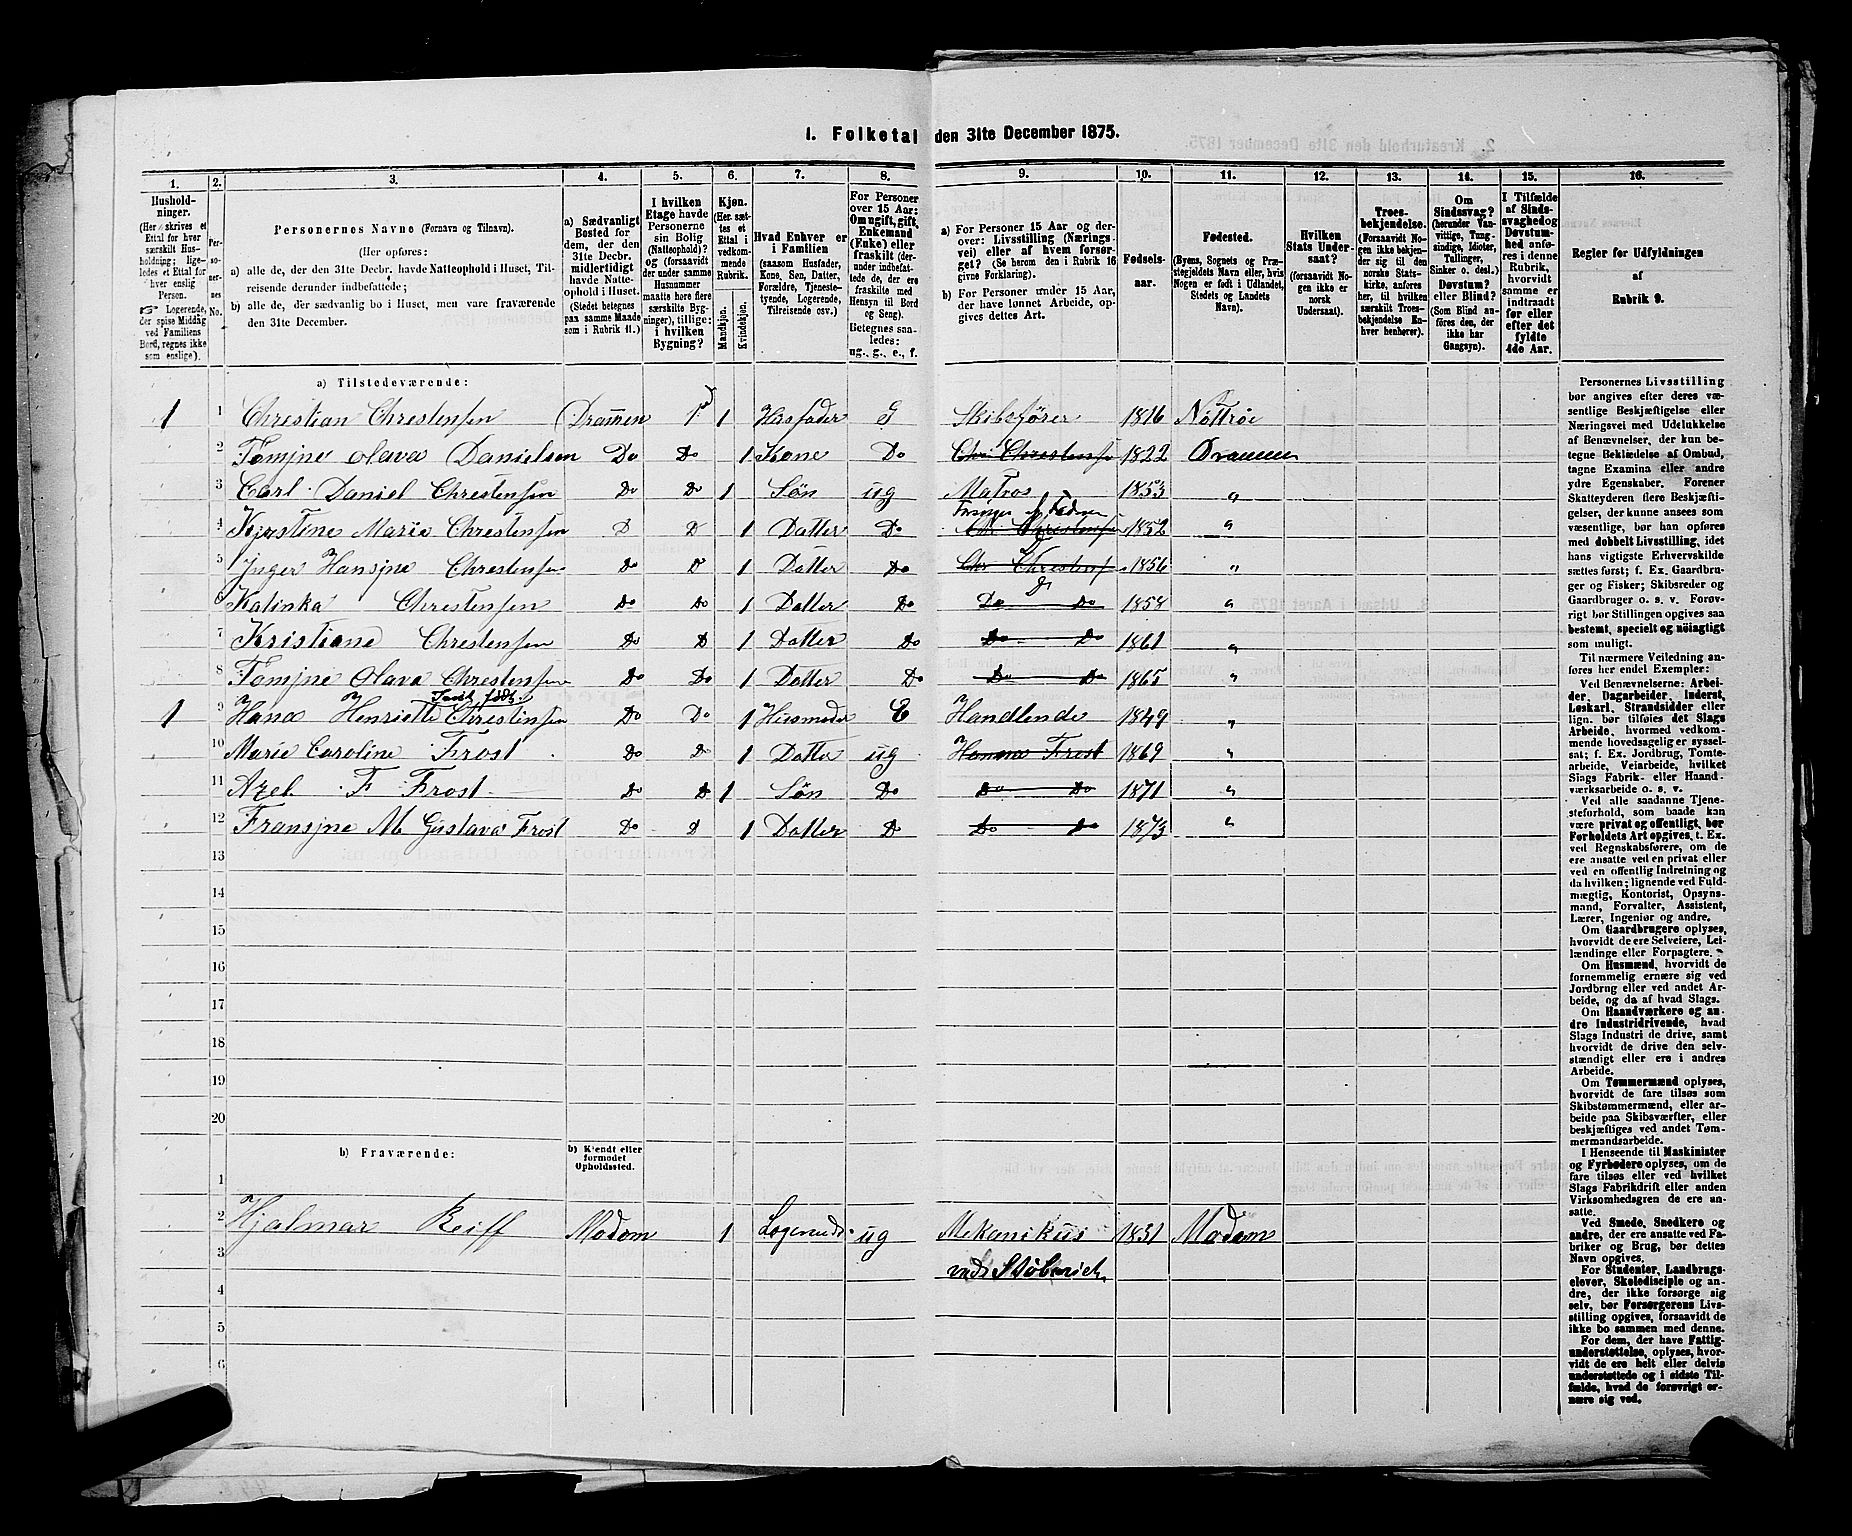 1. Folketal den 31te December 1875.
1. 2. 3. 4. 5. 6. 7. 8. 9. 10. 11. 12. 13. 14. 15. 16.
Hushold-
ninger.
(Her skrives et
Ettal for hver
særskilt Hus-
holdning; lige-
ledes et Ettal for
hver enslig
Person.
Logerende,
der spise Middag
ved Familiens
Bord, regnes ikke
som enslige).
Per-
so-
ner-
nes
No.
Personernes Navne (Fornavn og Tilnavn).
(Her opføres:
a) alle de, der den 31te Decbr. havde Natteophold i Huset, Til-
reisende derunder indbefattede;
b) alle de, der sædvanlig bo i Huset, men vare fraværende
den 31te December.
a) Sædvanligt
Bosted for
dem, der den
31te Decbr.
midlertidigt
havde Natte-
ophold i Huset.
(Stedet betegnes
paa samme Maade
som i Rubrik 11.)
I hvilken
Etage havde
Personerne
sin Bolig
(Natteophold)?
og (forsaavidt
der under samme
Husnummer
maatte høre flere
særskilte Byg-
ninger), tillige:
i hvilken
Bygning?
Kjøn.
(Her sæt-
tes et
Ettal i
vedkom-
mende
Rubrik.
Mandkjøn.
Kvindekjøn.
Hvad Enhver er
i Familien
(saasom Husfader,
Kone, Søn, Datter,
Forældre, Tjeneste-
tyende, Logerende,
Tilreisende osv.)
For Personer
over 15 Aar:
Om ugift, gift,
Enkemand
(Enke) eller
fraskilt (der-
under indbefat-
tede de, der ere
fraskilte med
Hensyn til Bord
og Seng).
Betegnes saa-
ledes:
ug., g., e., f.
a) For Personer 15 Aar og der-
over: Livsstilling (Nærings-
vei) eller af hvem forsør-
get? (Se herom den i Rubrik 16
givne Forklaring).
b) For Personer under 15 Aar,
der have lønnet Arbeide, op-
gives dettes Art.
Fødsels-
aar.
Fødested.
(Byens, Sognets og Præ-
stegjeldets Navn eller, hvis
Nogen er født i Udlandet,
Stedets og Landets
Navn).
Hvilken
Stats Under-
saat?
(forsaavidt No-
gen ikke er
norsk
Undersaat).
Troes-
bekjendelse.
(Forsaavidt No-
gen ikke bekjen-
der sig til den
norske Stats-
kirke, anføres
her, til hvilken
særskilt Troes-
bekjendelse En-
hver henhører).
Om
Sindssvag?
(herunder Van-
vittige, Tung-
sindige, Idioter,
Tullinger,
Sinker o. desl.)
Døvstum?
eller Blind?
(Som Blind an-
føres den, der
ikke har
Gangsyn).
I Tilfælde
af Sinds-
svaghed og
Døvstum-
hed anfø-
res i denne
Rubrik,
hvorvidt
samme er
indtraadt
før eller
efter det
fyldte
4de Aar.
Regler for Udfyldningen
af
Rubrik 9.
a) Tilstedeværende:
1 1 Christian Christensen Drammen 1 1 Husfader G Skibsfører 1816 Nøttrøe
2 Tomine Olava Danielsen Do Do 1 Kone Do Chr Christensen 1822 Drammen
3 Carl Daniel Christensen Do Do 1 Søn ug Matros 1853 "
Forsørges af Faderen
4 Kirstine Marie Christensen D D 1 Datter Do Chr Christensen 1852 "
5 Inger Hansine Christensen Do D 1 Datter Do Chr Christensen 1856 "
6 Kalinka Christensen Do Do 1 Datter Do Do Do 1858 "
7 Kristiane Christensen Do D 1 Datter Do Do Do 1861 "
8 Tomine Olava Christensen Do Do 1 Datter Do Do Do 1865 "
Frost født
1 9 Hana Henriette Christensen Do Do 1 Husmoder E Handlende 1849 "
10 Marie Caroline Frost Do Do 1 Datter ug Hanna Frost 1869 "
11 Axel F Frost Do D 1 Søn Do Do Do 1871 "
12 Fransine M Gustava Frost Do D 1 Datter D Do Do 1873 "
13
14
15
16
17
18
19
20
b) Fraværende:
b) Kjendt eller
formodet
Opholdssted.
1
2 Hjalmar Reiff Modum 1 Logerende ug Mekanikus 1851 Modum
3
4
5
6
Personernes Livsstilling
bør angives efter deres væ-
sentlige Beskjæftigelse eller
Næringsvei med Udelukkelse
af Benævnelser, der kun be-
tegne Beklædelse af Ombud,
tagne Examina eller andre
ydre Egenskaber. Forener
Skatteyderen flere Beskjæfti-
gelser, der kunne ansees som
væsentlige, bør han opføres
med dobbelt Livsstilling, idet
hans vigtigste Erhvervskilde
sættes først; f. Ex. Gaardbru-
ger og Fisker; Skibsreder og
Gaardbruger o. s. v. Forøv-
rigt bør Stillingen opgives saa
bestemt, specielt og nøiagtigt
som muligt.
Til nærmere Veiledning an-
føres her endel Exempler:
Ved Benævnelserne: Arbei-
der, Dagarbeider, Inderst,
Løskarl, Strandsidder eller
lign. bør tilføies det Slags
Arbeide, hvormed vedkom-
mende hovedsagelig er syssel-
sat; f. Ex. Jordbrug, Tomte-
arbeide, Veiarbeide, hvilket
Slags Fabrik- eller Haand-
værksarbeide o. s. v.
Ved alle saadanne Tjene-
steforhold, som baade kan
være privat og offentligt, bør
Forholdets Art opgives, t. Ex.
ved Regnskabsførere, om de
ere ansatte ved en privat eller
ved en offentlig Indretning og
da hvilken; lignende ved Fuld-
mægtig, Kontorist, Opsyns-
mand, Forvalter, Assistent,
Lærer, Ingeniør og andre.
Om Gaardbrugere oplyses,
hvorvidt de ere Selveiere, Lei-
lændinge eller Forpagtere.
Om Husmænd, hvorvidt de
fornemmelig ernære sig ved
Jordbrug eller ved andet Ar-
beide, og da af hvad Slags.
Om Haandværkere og an-
dre Industridrivende, hvad
Slags Industri de drive, samt
hvorvidt de drive den selv-
stændigt eller ere i andres
Arbeide.
Om Tømmermænd oplyses,
hvorvidt de fare tilsøs som
Skibstømmermænd, eller ar-
beide paa Skibsværfter, eller
beskjæftiges ved andet Tøm-
mermandsarbeide.
I Henseende til Maskinister
og Fyrbødere oplyses, om de
fare tilsøs eller ved hvilket
Slags Fabrikdrift eller anden
Virksomhedsgren de ere an-
satte.
Ved Smede, Snedkere og
andre, der ere ansatte ved Fa-
briker og Brug, bør dettes
Navn opgives.
For Studenter, Landbrugs-
elever, Skoledisciple og an-
dre, der ikke forsørge sig
selv, bør Forsørgerens Livs-
stilling opgives, forsaavidt de
ikke bo sammen med denne.
For dem, der have Fattig-
understøttelse, oplyses, hvor-
vidt de ere helt eller delvis
understøttede og i sidste Til-
fælde, hvad de forøvrigt er-
nære sig ved.